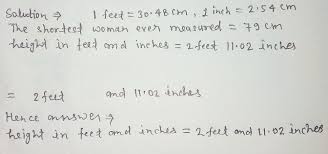 Solution ⇒ 1 feet = 30.48 cm, 1 inch = 2.54 cm
The shortest woman ever measured = 79 cm
height in feet and inches = 2 feet 11.02 inches
= 2 feet and 11.02 inches
Hence answer ⇒
height in feet and inches = 2 feet and 11.02 inches